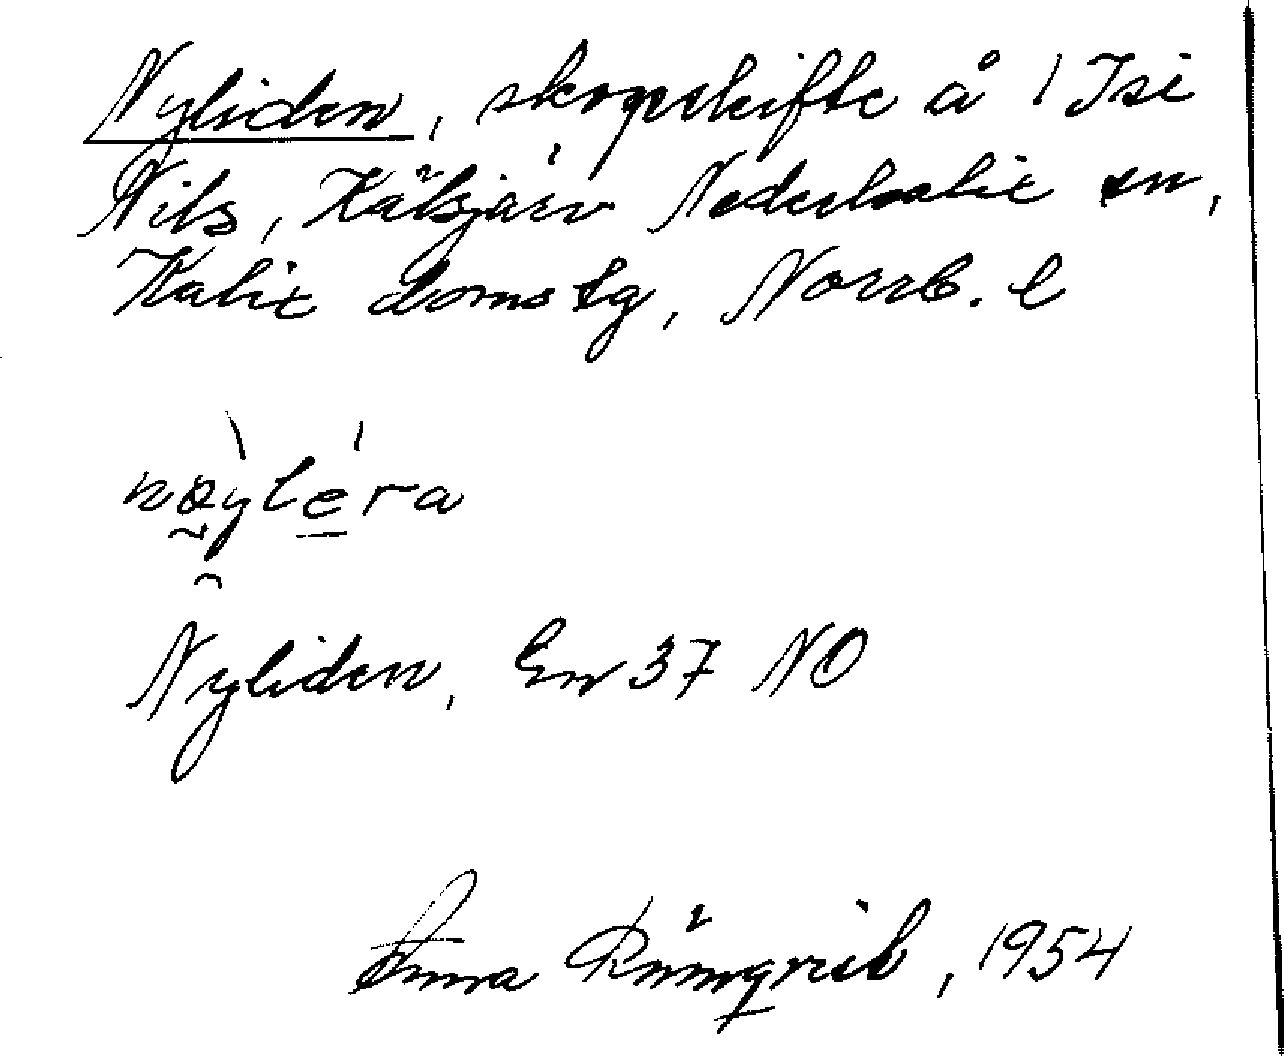 Nyliden, skogsskifte å 1 Isi
Nils, Kälsjärv Nederkalix sn,
Kalix domstg, Norrb. l
nøylera
Nyliden, En 37 NO
Anna Rönnqvist, 1954